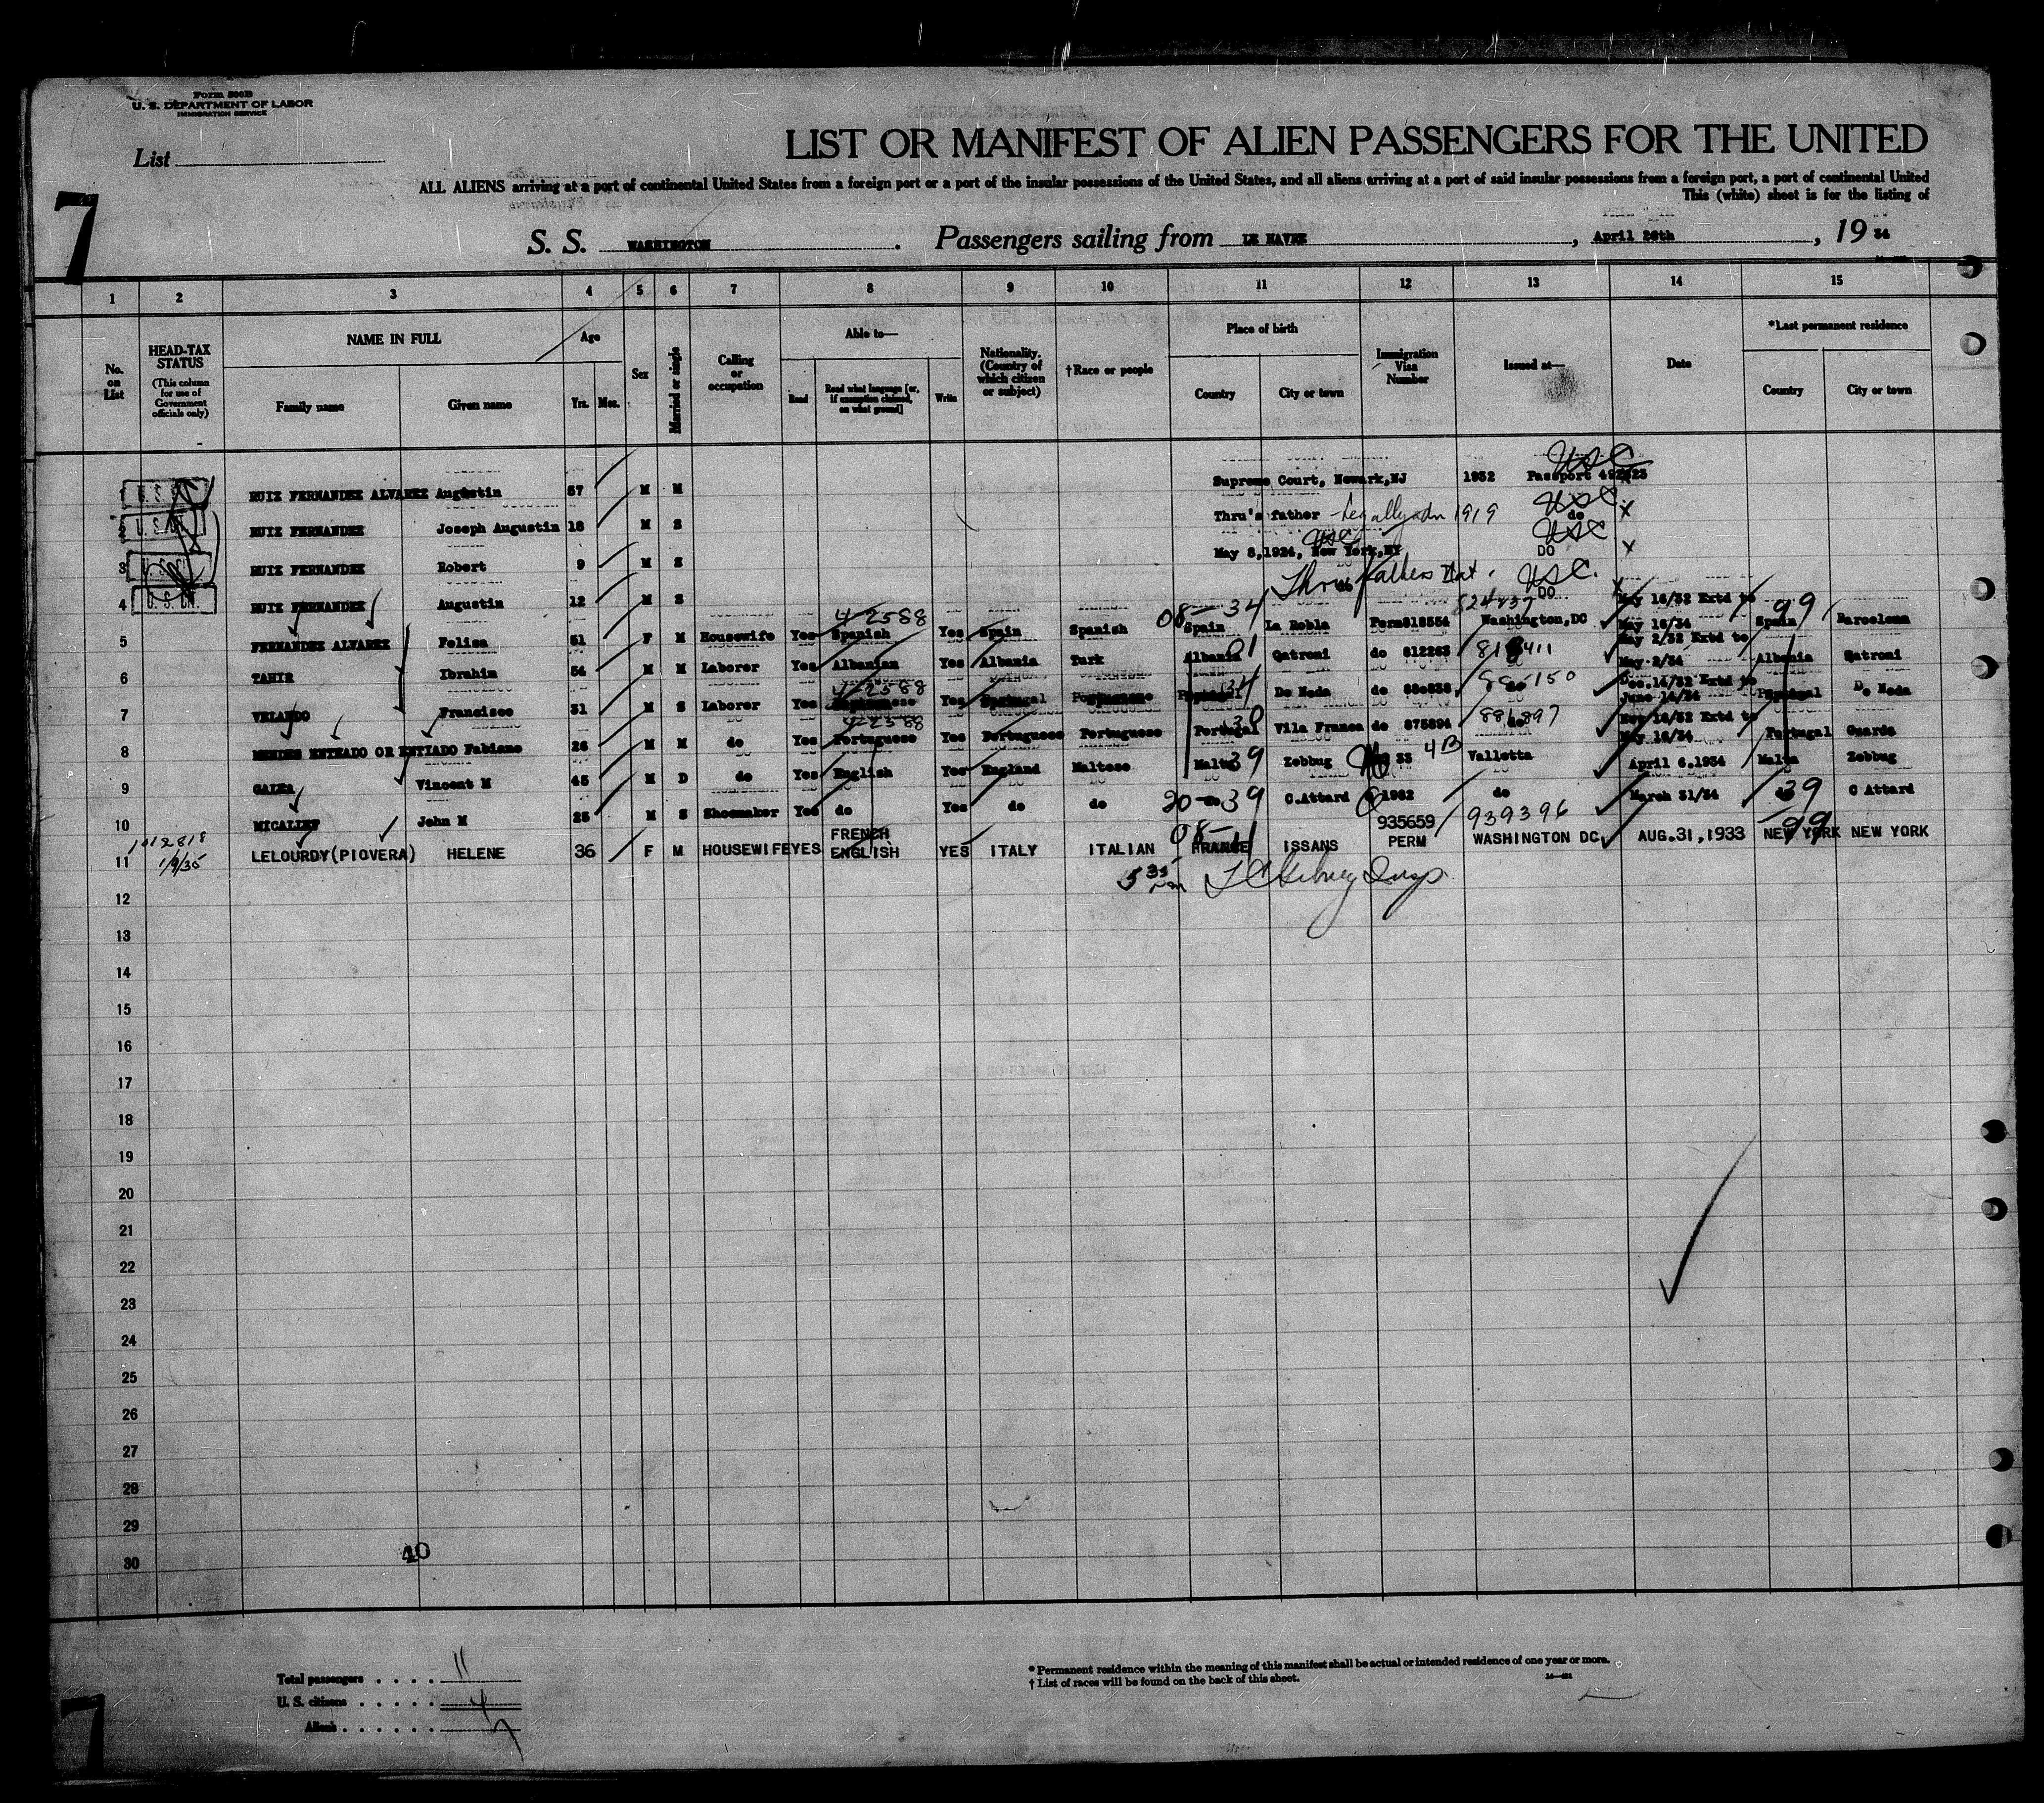 Form 500B
U. S. DEPARTMENT OF LABOR
IMMIGRATION SERVICE
List
7
LIST OR MANIFEST OF ALIEN PASSENGERS FOR THE UNITED
ALL ALIENS arriving at a port of continental United States from a foreign port or a port of the insular possessions of the United States, and all aliens arriving at a port of said insular possessions from a foreign port, a port of continental United
This (white) sheet is for the listing of
S. S. WASHINGTON. Passengers sailing from LE HAVRE, April 26th, 19 34
1 2 3 4 5 6 7 8 9 10 11 12 13 14 15
No. on List
HEAD-TAX STATUS (This column for use of Government officials only)
NAME IN FULL
Family name
Given name
Age
Yrs. Mos.
Sex
Married or single
Calling or occupation
Able to—
Read
Read what language [or, if exemption claimed, on what ground]
Write
Nationality. (Country of which citizen or subject)
†Race or people
Place of birth
Country
City or town
Immigration Visa Number
Issued at—
Date
*Last permanent residence
Country
City or town
USC
1 RUIZ FERNANDEZ ALVAREZ Augustin 57 M M Supreme Court, Newark, NJ 1932 Passport
USC
2 RUIZ FERNANDEZ Joseph Augustin 18 M S Thru's father legally adm 1919 do x
USC USC
3 RUIZ FERNANDEZ Robert 9 M S May 8, 1924, New York, NY DO x
Thru fathers Nat. USC.
4 RUIZ FERNANDEZ Augustin 12 M S DO x
4-2588 08-34 824237 May 16/32 Extd to 99
5 FERNANDEZ ALVAREZ Felisa 51 F M Housewife Yes Spanish Yes Spain Spanish Spain La Robla Perm818554 Washington, DC May 16/34 Spain Barcelona
01 May 2/32 Extd to
6 TAHIR Ibrahim 54 M M Laborer Yes Albanian Yes Albania Turk Albania Qatromi do 812263 May 2/34 Albania Qatromi
4-2588 34 Dec.14/32 Extd to
7 VELANDO Francisco 31 M S Laborer Yes Yes Portugal De Neda do June 14/34 Portugal De Neda
4-2588 38 881897 Nov 16/32 Extd to
8 MENDES ENTEADO OR ENTIADO Fabiano 26 M M do Yes Portuguese Yes Portuguese Portuguese Portugal Vila Franca do 875894 May 16/34 Portugal Guarda
39 4B
9 GALEA Vincent M 45 M D do Yes English Yes England Maltese Malta Zebbug 33 Valletta April 6.1934 Malta Zebbug
20-39 39
10 MICALLEF John M 25 M S Shoemaker Yes do Yes do do do C.Attard do March 31/34 C Attard
1012818 FRENCH 08- 935659 939396 99
11 LELOURDY(PIOVERA) HELENE 36 F M HOUSEWIFE YES ENGLISH YES ITALY ITALIAN FRANCE ISSANS PERM WASHINGTON DC AUG.31,1933 NEW YORK NEW YORK
1/9/35
5 35
12
13
14
15
16
17
18
19
20
21
22
23
24
25
26
27
28
29
30
40
Total passengers . . . . 11
U. S. citizens . . . . . 4
Aliens . . . . . . 7
* Permanent residence within the meaning of this manifest shall be actual or intended residence of one year or more.
† List of races will be found on the back of this sheet.
7